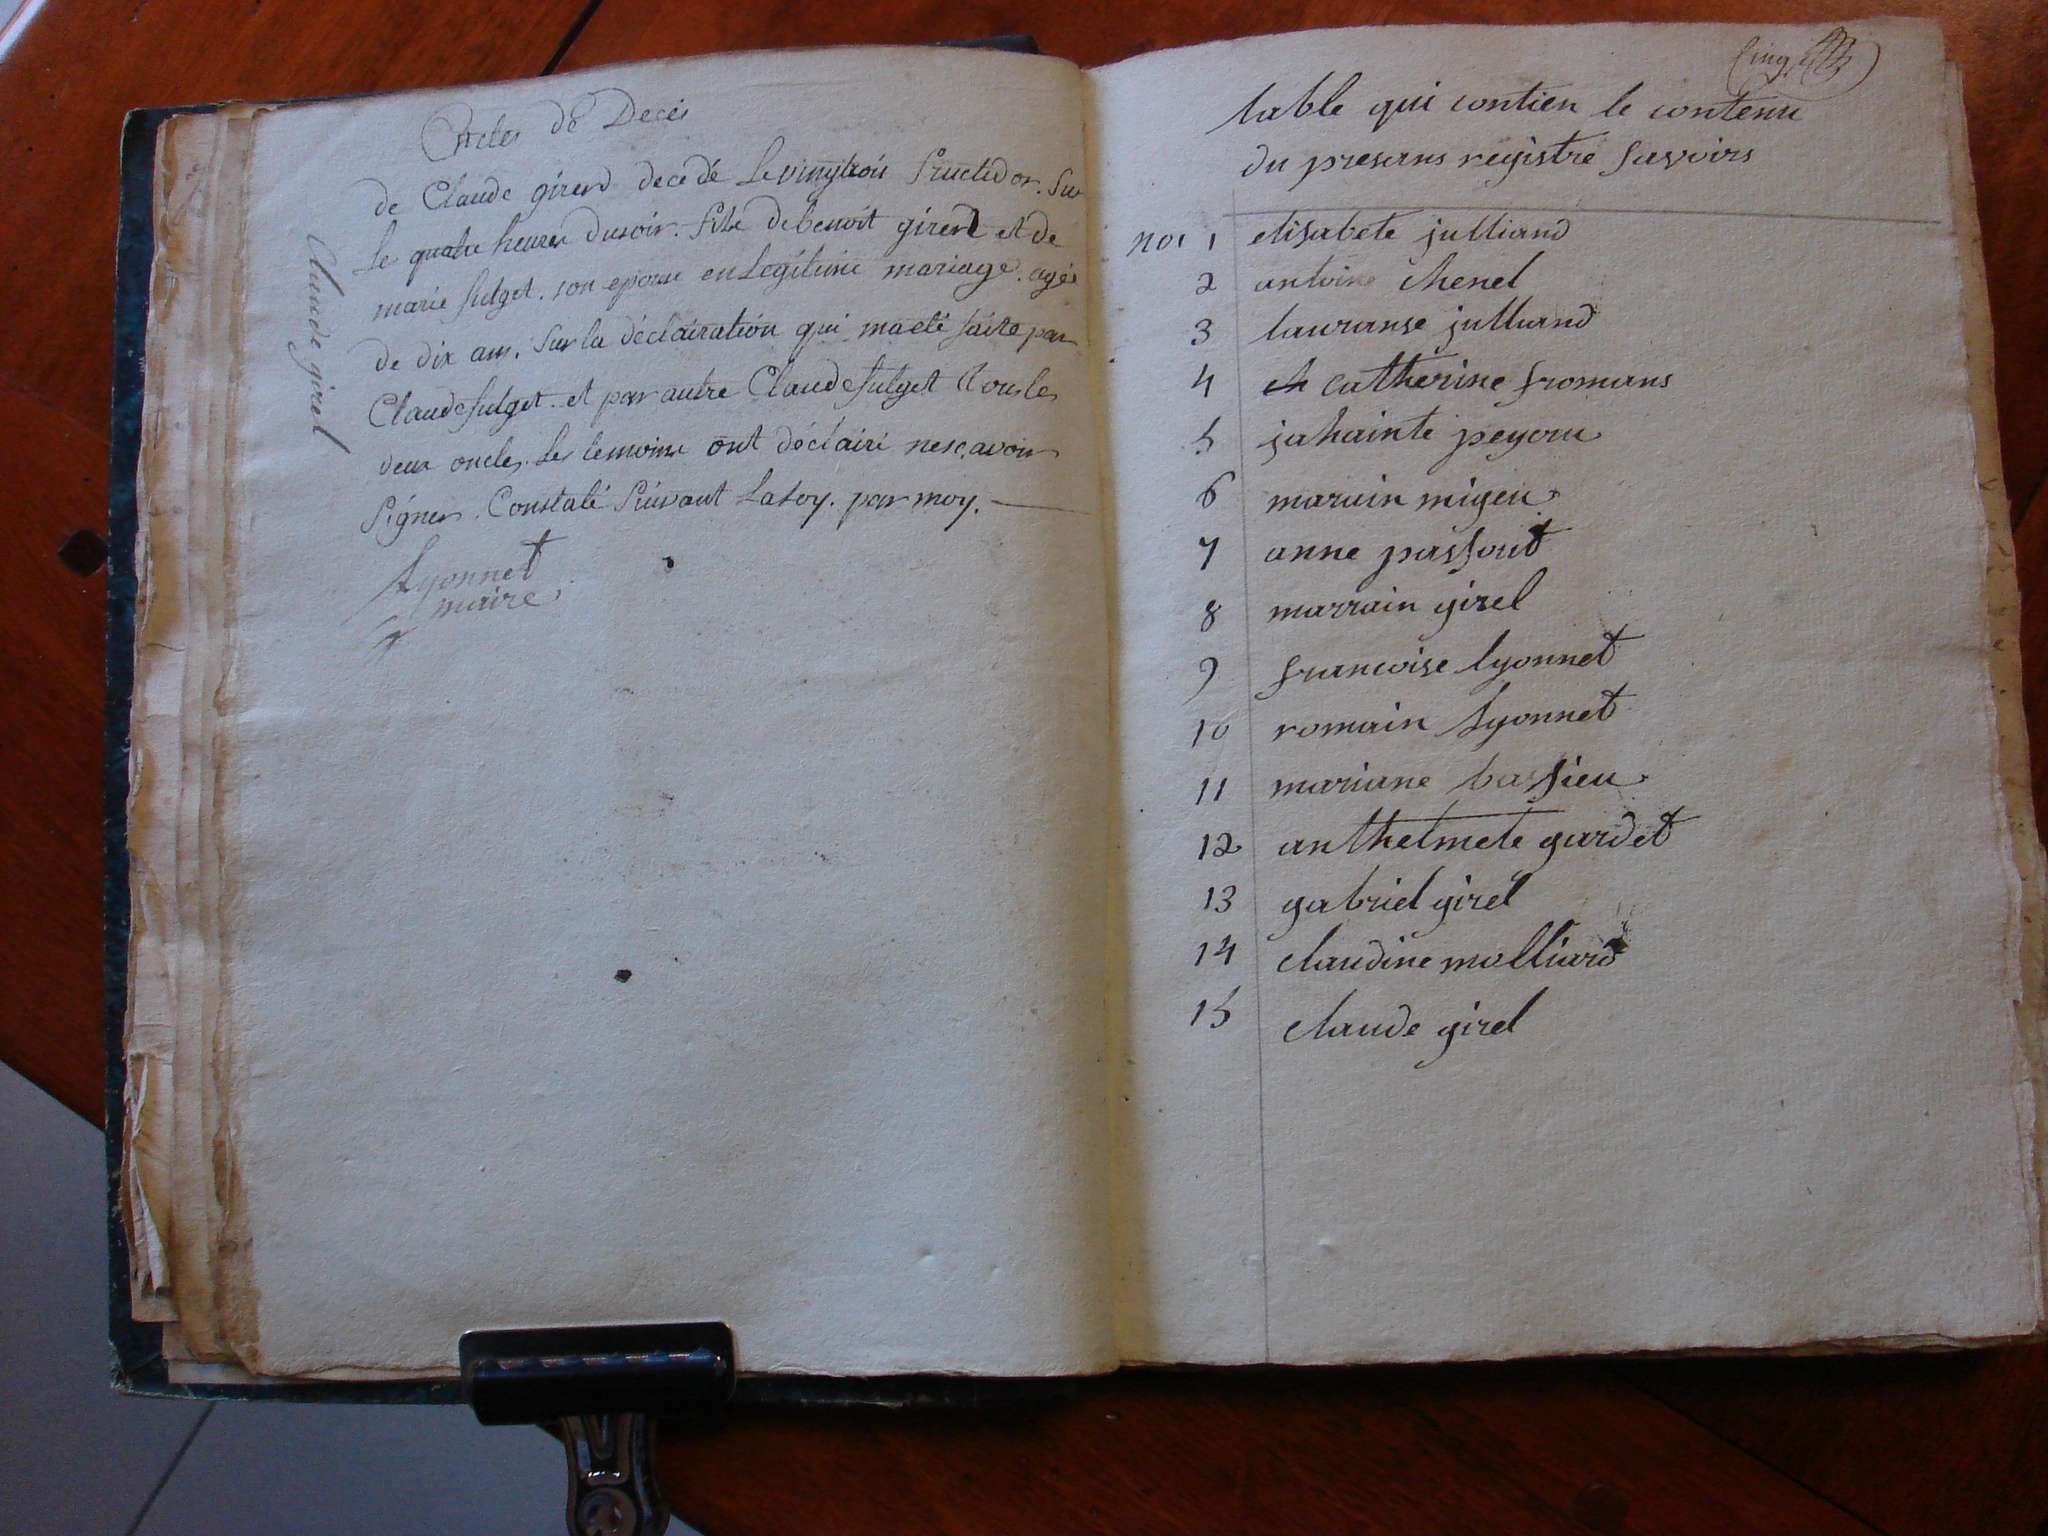 Actes de Decés
de Claude girerd decedé Le vingtroi fructidor. Sur
Le quatre heures du soir. fils de benoit girerd et de
marie fulget. son epouse en Legitime mariage. agée
de dix ans. Sur la déclairation qui ma eté faite par
Claude fulget. et par autre Claude fulget tous les
deux oncles. Les temoins ont déclairé ne scavoir
Signer. Constaté Suivant La Loy. par moy.
Lyonnet
maire
Claude girel
Cinq
table qui contien le contenu
du presans registre savoirs
no. 1 elisabete julliand
2 antoine chenel
3 lauranse julliand
4 ch catherine fromans
5 jahainte peyoru
6 maruin migeu
7 anne passout
8 marrain girel
9 francoise lyonnet
10 romain Lyonnet
11 mariane bassieu
12 anthelmete gardet
13 gabriel girel
14 claudine molliard
15 claude girel